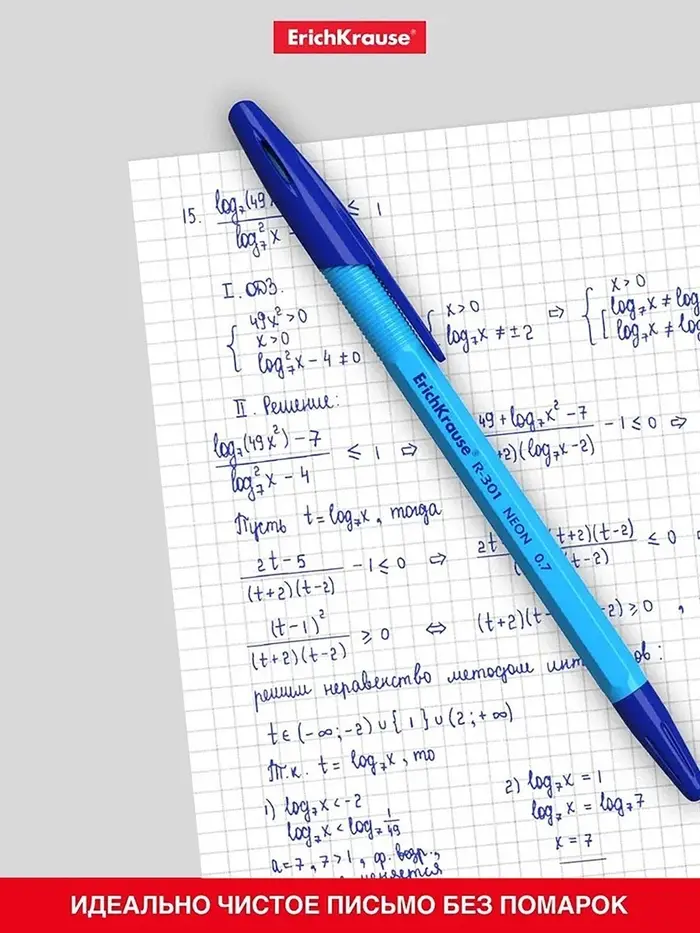 ErichKrause®
15. log₇(49x ≤ 1
log₇²x -
I. ОДЗ.
{ 49x²>0
x>0
log₇²x - 4 ≠ 0
{ x>0
log₇x ≠ ±2 ⇒
{ x>0
[ log₇x ≠ log
log₇x ≠ log₇
II. Решение:
log₇(49x²) - 7 / log₇²x - 4 ≤ 1 ⇒ 49 + log₇x² - 7 / +2)(log₇x - 2) - 1 ≤ 0 ⇒
ErichKrause® R-301 NEON 0.7
Пусть t = log₇x, тогда
2t - 5 / (t+2)(t-2) - 1 ≤ 0 ⇒ 2t (t+2)(t-2) / t-2) ≤ 0
(t-1)² / (t+2)(t-2) ≥ 0 ⇔ (t+2)(t- -2) ≥ 0,
решим неравенство методом инт ов:
t∈(-∞;-2)∪{1}∪(2;+∞)
Т.к. t = log₇x, то
1) log₇x < -2
log₇x < log₇ 1/49
a=7, 7>1, ф. возр.,
2) log₇x = 1
log₇x = log₇7
x = 7
ИДЕАЛЬНО ЧИСТОЕ ПИСЬМО БЕЗ ПОМАРОК